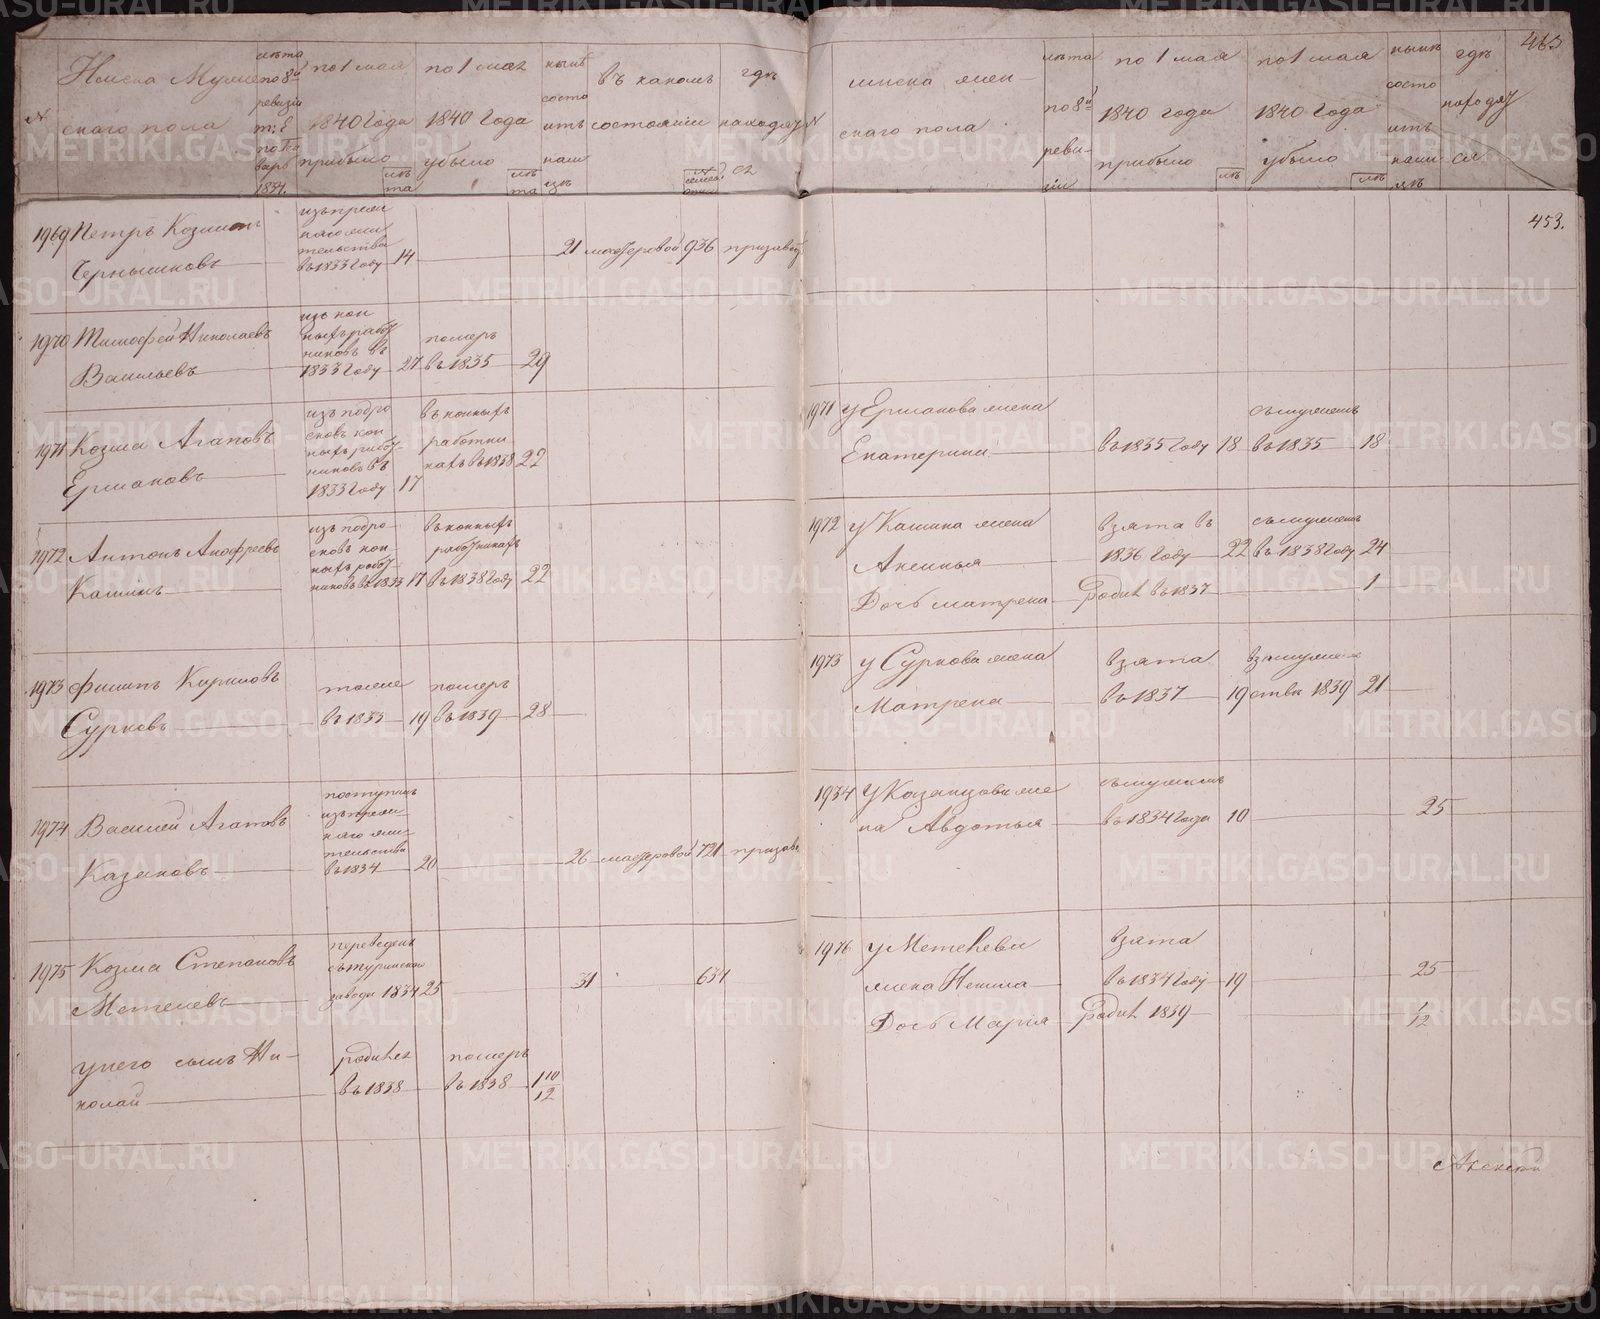 №
Имена Муже
скаго пола
лѣта
по 8й
ревизіи
1834.
по 1 мая
1840 Года
прибыло
лѣ
та
по 1 мая
1840 Года
убыло
лѣ
та
нынѣ
состо
итъ
на
въ какомъ
состояніи
гдѣ
находят
ся
№
имена жен
скаго пола
лѣта
по 8й
реви
зіи
по 1 мая
1840 года
прибыло
лѣ
по 1 мая
1840 Года
убыло
лѣ
нынѣ
состо
итъ
на
гдѣ
находят
ся
463
453.
1969 Петръ Козминъ
Чернышковъ
изъ преж
няго жи
тельства
въ 1833 Году 14
21 мастеровой 936 при завод
1970 Тимофей Николаевъ
Васильевъ
изъ кон
ныхъ работ
никовъ въ
1833 Году 27
померъ
въ 1835 29
1971 Козма Агаповъ
Ермаковъ
изъ подро
сковъ кон
ныхъ работ
никовъ въ
1833 Году 17
въ конныхъ
работни
кахъ въ 1838 22
1971 у Ермакова жена
Екатерина
въ 1835 Году 18
съ мужемъ
въ 1835 18
1972 Антонъ Анофреевъ
Кашинъ
изъ подро
сковъ кон
ныхъ работ
никовъ въ 1833 17
въ конныхъ
работникахъ
въ 1838 Году 22
1972 у Кашина жена
Аксинья
взята въ
1836 Году 22
съ мужемъ
въ 1838 Году 24
Дочь матрена Родил въ 1837 1
1973 Филипъ Кириловъ
Сурковъ
тоже
въ 1833 19
померъ
въ 1839 28
1973 у Суркова жена
Матрена
взята
въ 1837 19
в замуже
ствѣ 1839 21
1974 Василей Агаповъ
Казаковъ
поступилъ
изъ преж
няго жи
тельства
въ 1834 20
26 мастеровой 721 при завод
1934 у Казанцова же
на Авдотья
съ мужемъ
въ 1834 Года 10
25
1975 Козма Степановъ
Метелевъ
переведенъ
съ туринскаго
завода 1834 25
31
634
1976 у Метелева
жена Ненила
взята
въ 1834 Году 19
25
Дочь Марія Родил 1839
1/12
у него сынъ Ни
колай
родился
въ 1838
померъ
въ 1838 1 10/12